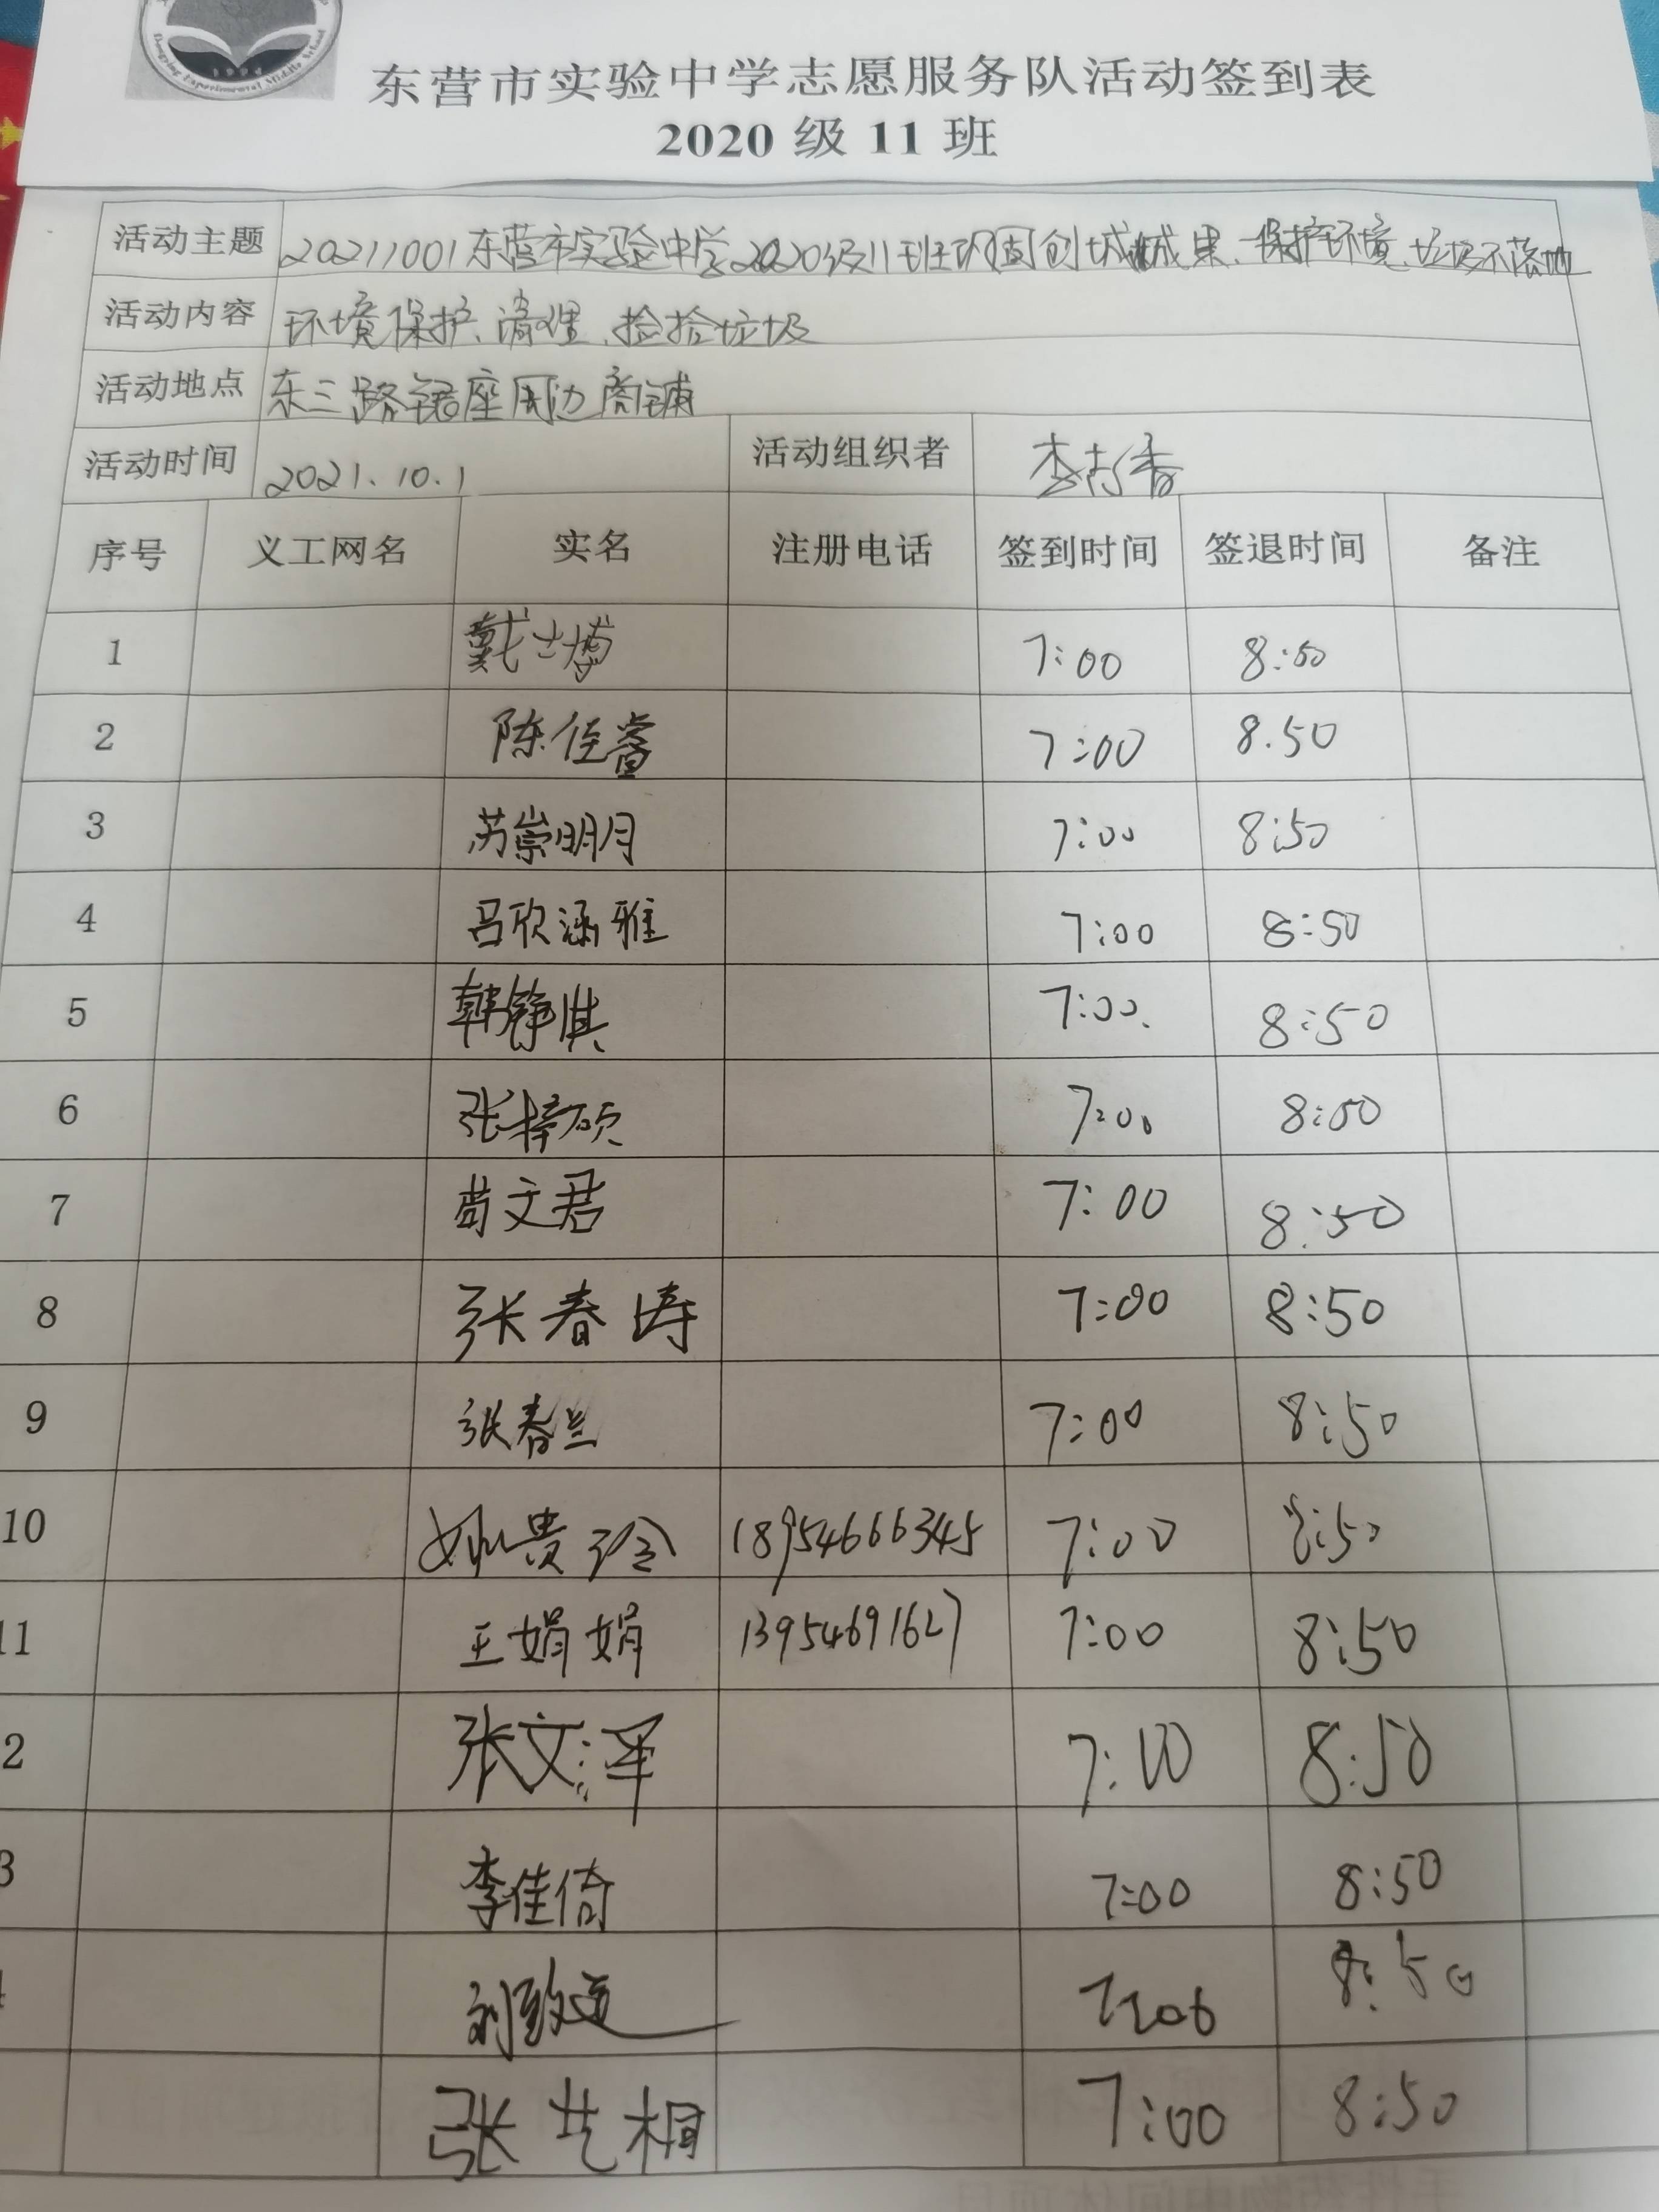 1994
Dongying Experimental Middle School
东营市实验中学志愿服务队活动签到表
2020 级 11 班
活动主题 20211001东营市实验中学2020级11班巩固创城成果、保护环境、垃圾不落地
活动内容 环境保护、清理、捡拾垃圾
活动地点 东三路银座周边商铺
活动时间 2021.10.1 活动组织者
序号 义工网名 实名 注册电话 签到时间 签退时间 备注
1 戴士博 7:00 8:50
2 陈佳睿 7:00 8.50
3 苏崇明月 7:00 8:50
4 吕欣涵雅 7:00 8:50
5 韩铮淇 7:00 8:50
6 张梓硕 7:00 8:50
7 苟文君 7:00 8:50
8 张春涛 7:00 8:50
9 张春兰 7:00 8:50
10 姚贵玲 18954666345 7:00 8:50
11 王娟娟 13954691627 7:00 8:50
2 张文泽 7:00 8:50
3 李佳倚 7:00 8:50
刘致远 7:00 8:50
张艺桐 7:00 8:50